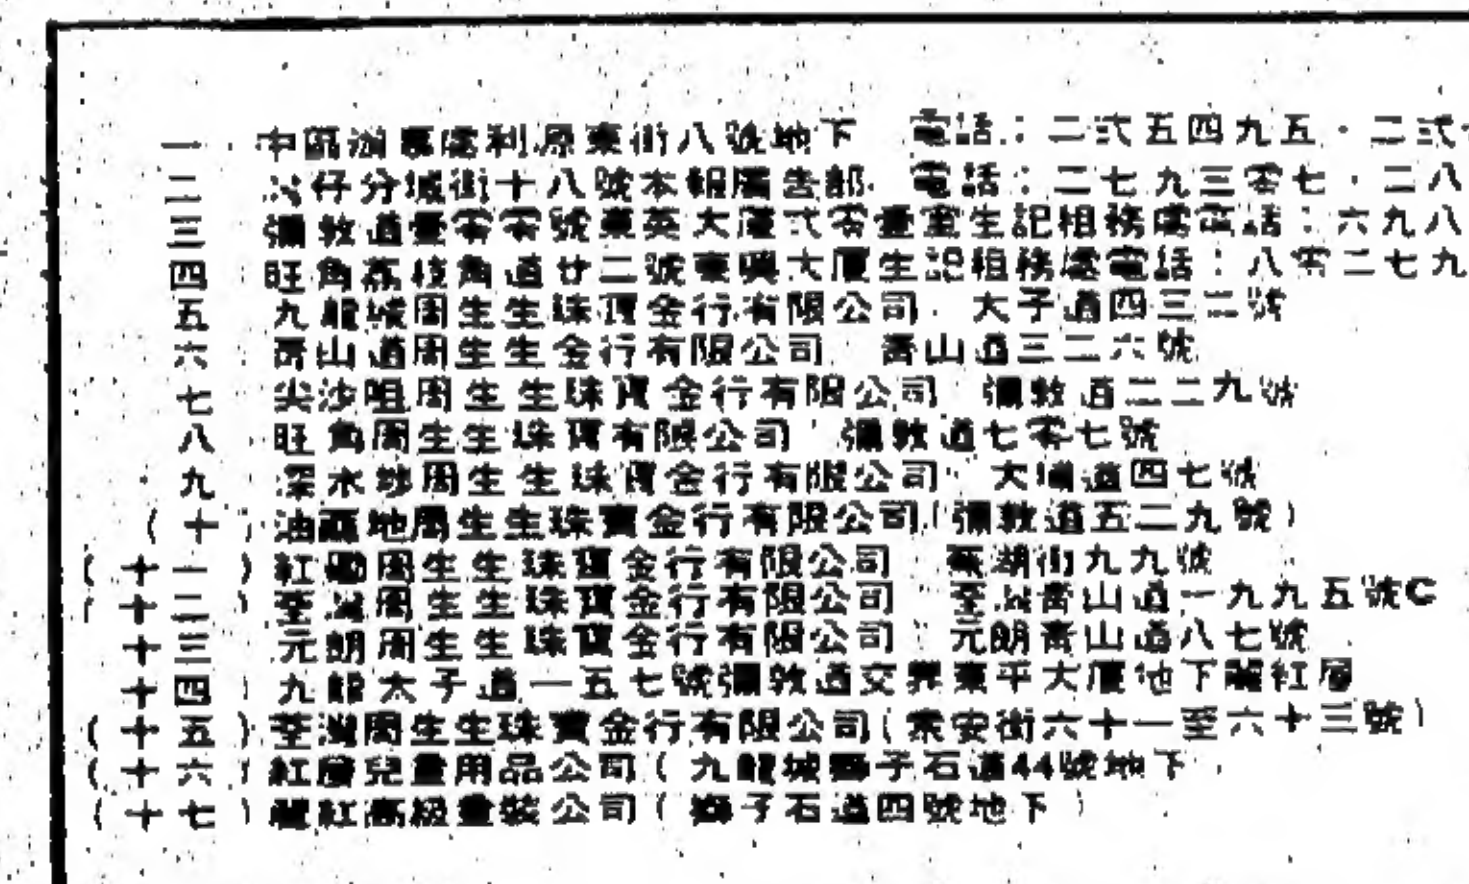 一 中區 利源東街八號地下 電話：二弍五四九五·二弍
二 灣仔分域街十八號本報廣告部 電話：二七九三零七·二八
三 彌敦道壹零零號東英大廈弍零壹室生記租務處電話：六九八
四 旺角荔枝角道廿二號東興大廈生記租務處電話：八零二七九
五 九龍城周生生珠寶金行有限公司 太子道四三二號
六 青山道周生生金行有限公司 青山道三二六號
七 尖沙咀周生生珠寶金行有限公司 彌敦道二二九號
八 旺角周生生珠寶有限公司 彌敦道七零七號
九 深水埗周生生珠寶金行有限公司 大埔道四七號
（十）油蔴地周生生珠寶金行有限公司（彌敦道五二九號）
（十一）紅磡周生生珠寶金行有限公司 蕪湖街九九號
（十二）荃灣周生生珠寶金行有限公司 荃灣青山道一九九五號C
十三 元朗周生生珠寶金行有限公司 元朗青山道八七號
十四）九龍太子道一五七號彌敦道交界東平大廈地下麗紅層
（十五）荃灣周生生珠寶金行有限公司（眾安街六十一至六十三號）
（十六）紅層兒童用品公司（九龍城獅子石道44號地下
（十七）麗紅高級童裝公司（獅子石道四號地下）